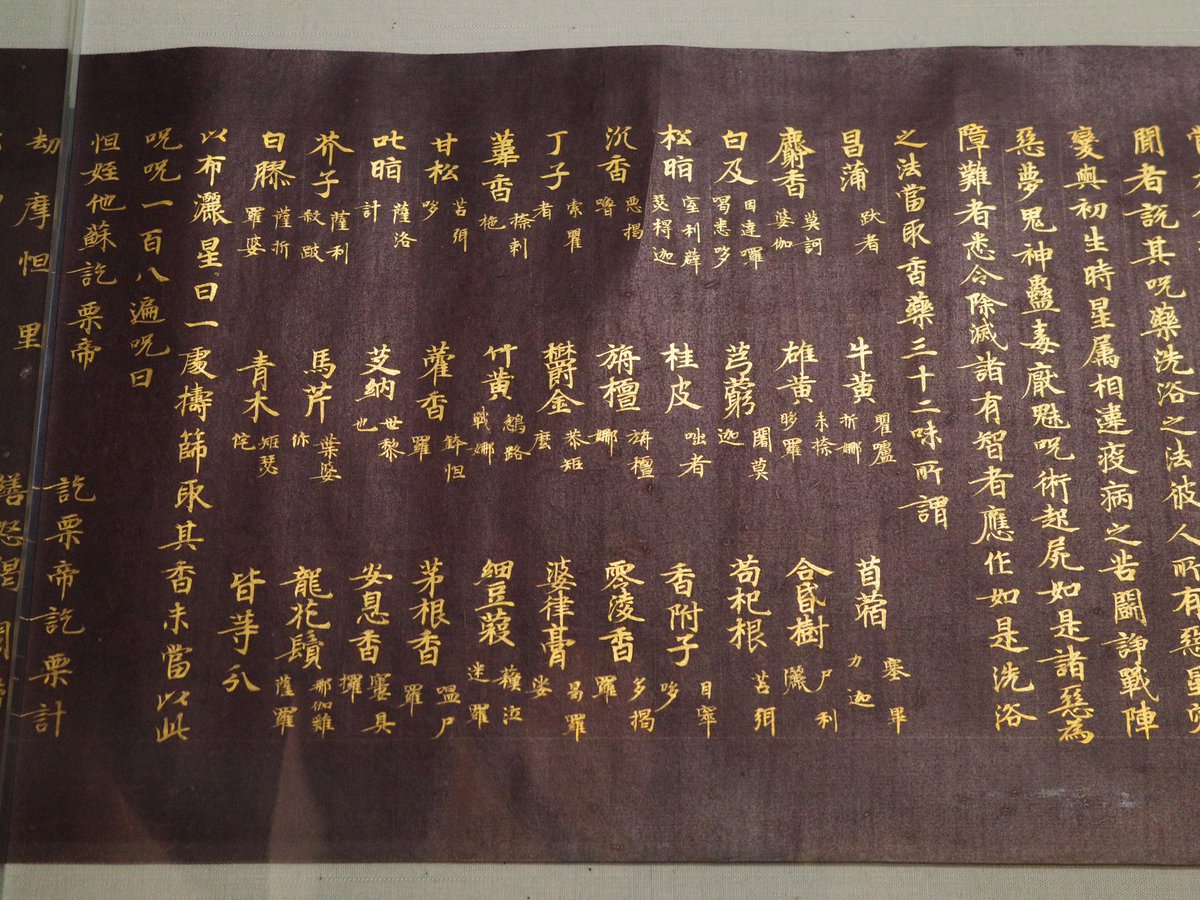 聞者說其呪藥洗浴之法彼人所有惡星災
變與初生時星属相違疫病之苦鬪諍戰陣
惡夢鬼神蠱毒厭魅呪術起屍如是諸惡為
障難者悉令除滅諸有智者應作如是洗浴
之法當取香藥三十二味所謂
昌蒲 跋者 牛黃 瞿嚧折娜 苜蓿 塞畢力迦
麝香 莫訶婆伽 雄黃 末捺眵羅 合昏樹 尸利灑
白及 因達囉曷悉哆 芎藭 闍莫迦 苟杞根 苫弭
松脂 室利薜瑟得迦 桂皮 咄者 香附子 目窣哆
沉香 惡揭嚕 旃檀 旃檀娜 零凌香 多揭羅
丁子 索瞿者 欝金 茶矩麼 婆律膏 曷羅娑
葦香 捺剌柂 竹黃 鶬路戰娜 細豆蔻 蘇泣迷羅
甘松 苫弭哆 藿香 鉢怛羅 茅根香 嗢尸羅
叱脂 薩洛計 艾納 世黎也 安息香 窶具攞
芥子 薩利殺跛 馬芹 葉婆你 龍花鬚 那伽雞薩羅
白膠 薩折羅婆 青木 矩瑟侘 皆等分
以布灑星日一處擣篩取其香末當以此
呪呪一百八遍呪曰
怛姪他蘇訖栗帝 訖栗帝訖栗計
劫摩怛里 繕怒羯